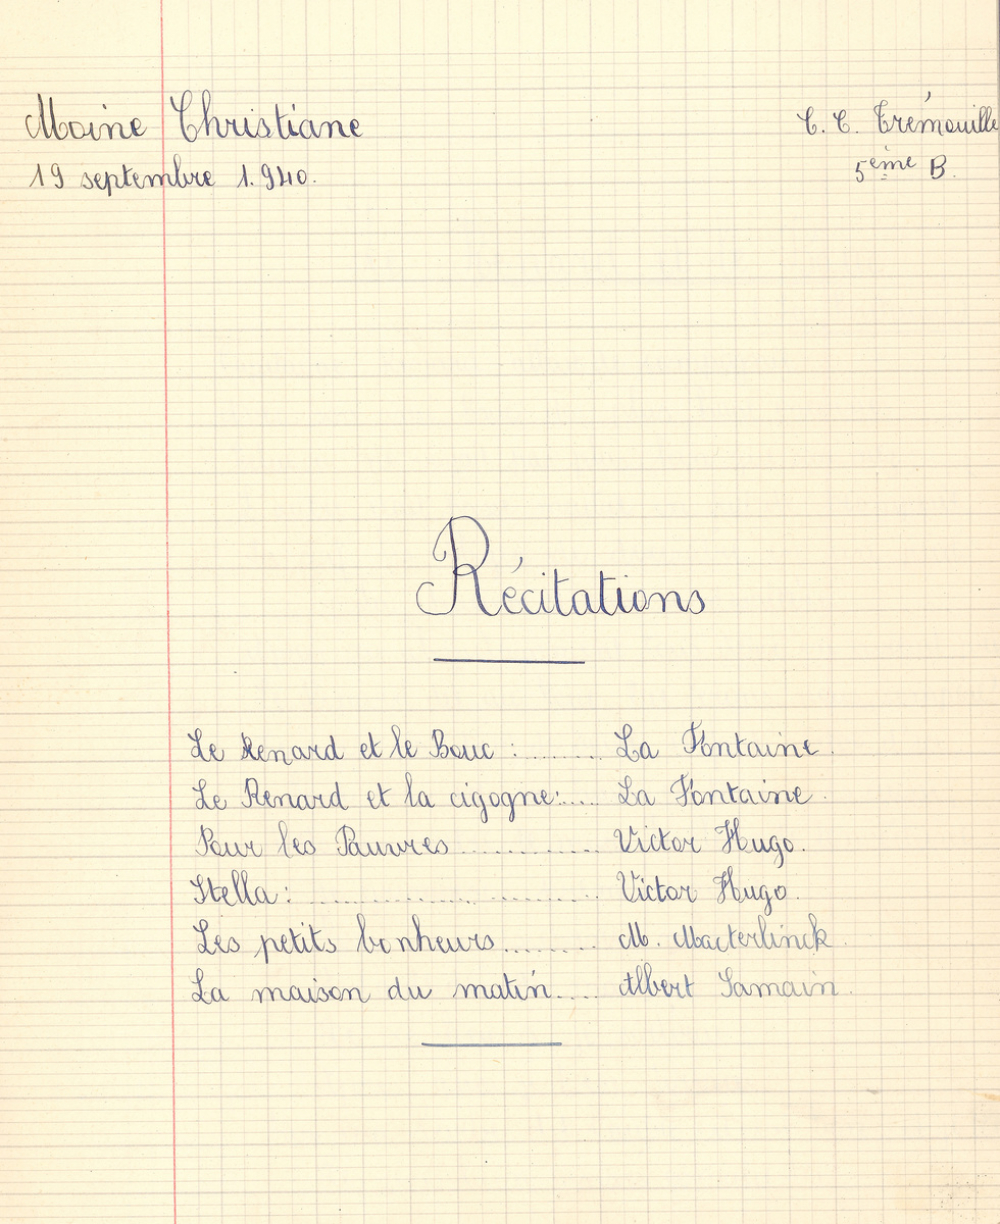 Moine Christiane
C. C. Trémouille
19 septembre 1.940.
5ème B.
Récitations
Le Renard et le Bouc : ........ La Fontaine.
Le Renard et la cigogne:.... La Fontaine.
Pour les Pauvres ............. Victor Hugo.
Stella: ........................... Victor Hugo.
Les petits bonheurs ......... M. Maeterlinck.
La maison du matin .... Albert Samain.